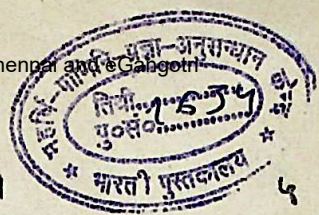 hennai and eGangotri
महर्षि-पाणिनि-प्रज्ञा-अनुसन्धान
तिथी
पु०सं० 1654
* भारती पुस्तकालय *
५